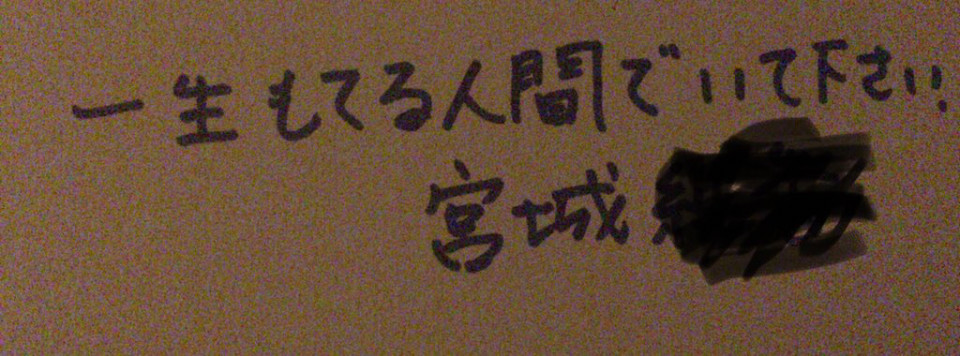 一生もてる人間でいて下さい!
宮城